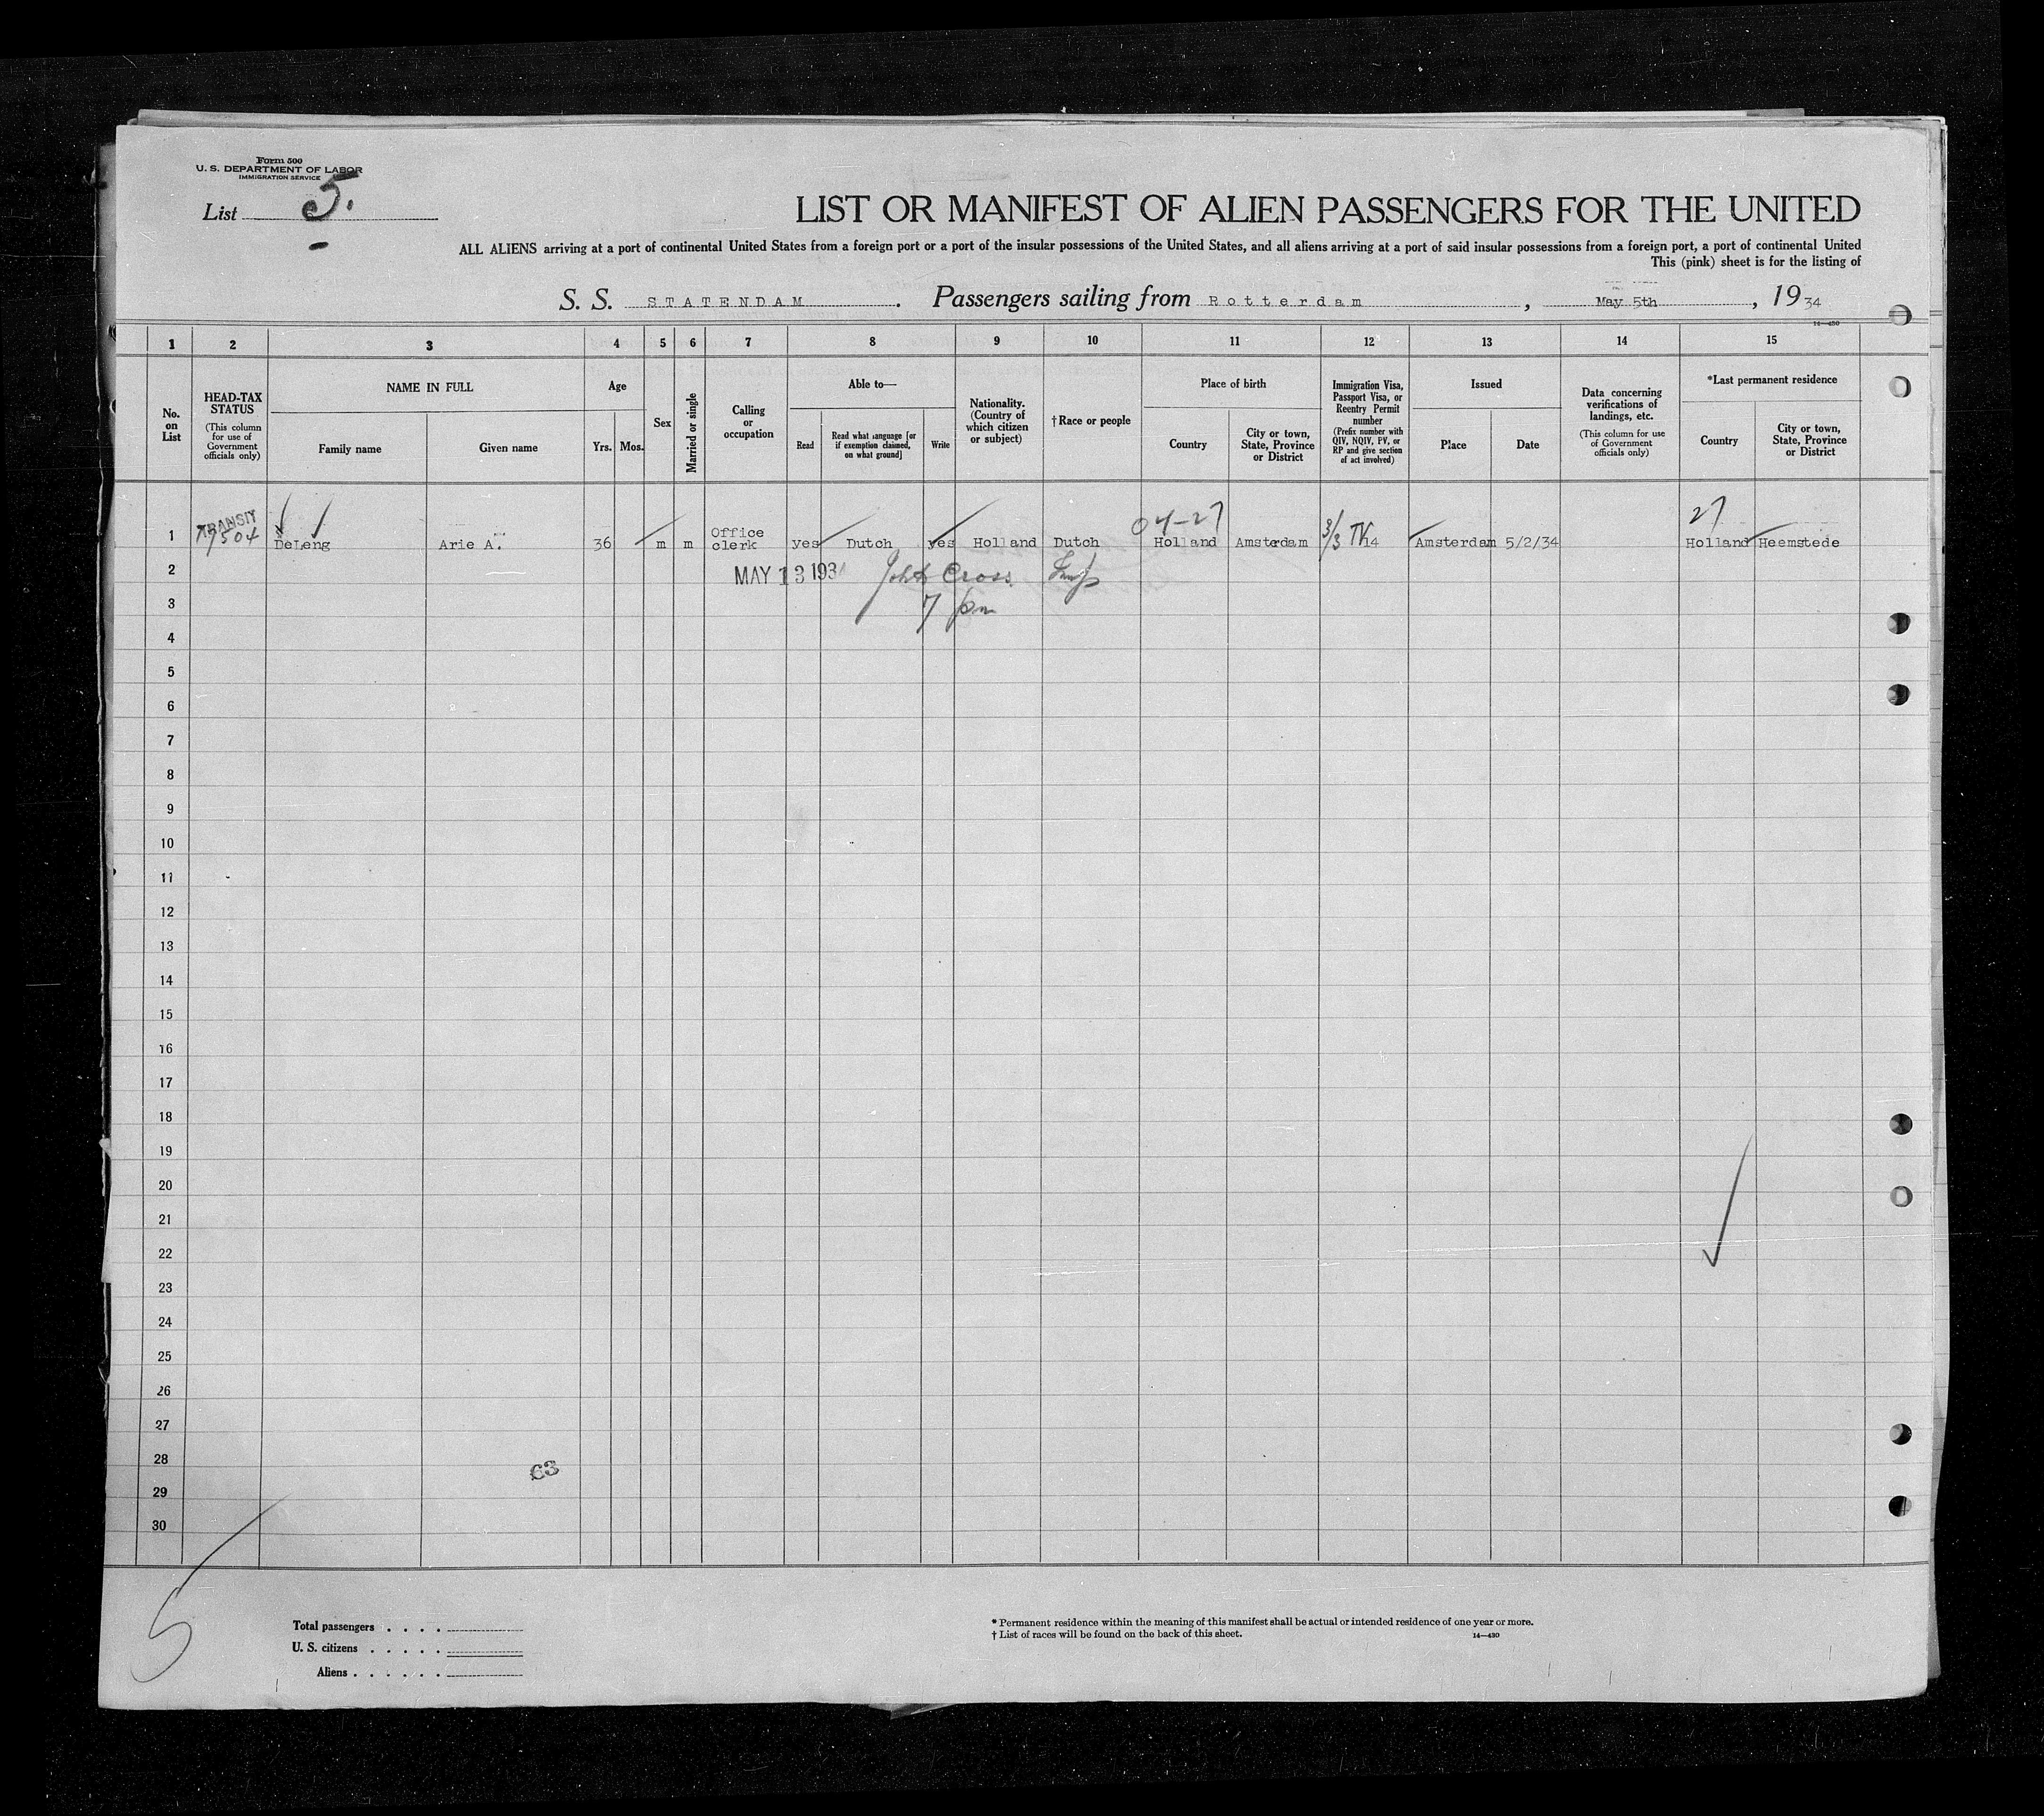 Form 500
U. S. DEPARTMENT OF LABOR
IMMIGRATION SERVICE
List 5.
LIST OR MANIFEST OF ALIEN PASSENGERS FOR THE UNITED
ALL ALIENS arriving at a port of continental United States from a foreign port or a port of the insular possessions of the United States, and all aliens arriving at a port of said insular possessions from a foreign port, a port of continental United
This (pink) sheet is for the listing of
S. S. STATENDAM. Passengers sailing from Rotterdam, May 5th, 1934
14—430
1 2 3 4 5 6 7 8 9 10 11 12 13 14 15
No. on List
HEAD-TAX STATUS
(This column for use of Government officials only)
NAME IN FULL
Family name
Given name
Age
Yrs. Mos.
Sex
Married or single
Calling or occupation
Able to—
Read
Read what language [or if exemption claimed, on what ground]
Write
Nationality. (Country of which citizen or subject)
†Race or people
Place of birth
Country
City or town, State, Province or District
Immigration Visa, Passport Visa, or Reentry Permit number
(Prefix number with QIV, NQIV, PV, or RP and give section of act involved)
Issued
Place
Date
Data concerning verifications of landings, etc.
(This column for use of Government officials only)
*Last permanent residence
Country
City or town, State, Province or District
TRANSIT
04-27
27
1 DeLeng Arie A. 36 m m Office clerk yes Dutch yes Holland Dutch Holland Amsterdam 3/3 TV 14 Amsterdam 5/2/34 Holland Heemstede
2 MAY 13 193 John Cross Insp
3 7 pm
4
5
6
7
8
9
10
11
12
13
14
15
16
17
18
19
20
21
22
23
24
25
26
27
28 63
29
30
5
Total passengers . . . .
U. S. citizens . . . . .
Aliens . . . . . .
* Permanent residence within the meaning of this manifest shall be actual or intended residence of one year or more.
† List of races will be found on the back of this sheet.
14—430